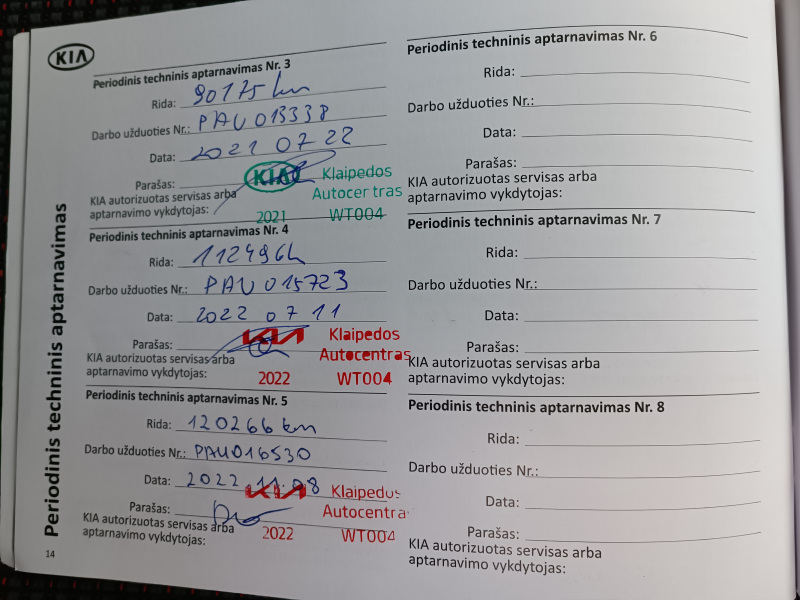 KIA
Periodinis techninis aptarnavimas
Periodinis techninis aptarnavimas Nr. 3
Rida: 90175 km
Darbo užduoties Nr.: PAU013338
Data: 2021 07 22
Parašas:
KIA autorizuotas servisas arba
aptarnavimo vykdytojas:
KIA Klaipedos
Autocentras
2021 WT004
Periodinis techninis aptarnavimas Nr. 4
Rida: 112496
Darbo užduoties Nr.: PAU 015723
Data: 2022 07 11
Parašas:
KIA autorizuotas servisas arba
aptarnavimo vykdytojas:
KIA Klaipedos
Autocentras
2022 WT004
Periodinis techninis aptarnavimas Nr. 5
Rida: 120266 km
Darbo užduoties Nr.: PAU016530
Data: 2022.11.08
Parašas:
KIA autorizuotas servisas arba
aptarnavimo vykdytojas:
KIA Klaipedos
Autocentra
2022 WT004
14
Periodinis techninis aptarnavimas Nr. 6
Rida:
Darbo užduoties Nr.:
Data:
Parašas:
KIA autorizuotas servisas arba
aptarnavimo vykdytojas:
Periodinis techninis aptarnavimas Nr. 7
Rida:
Darbo užduoties Nr.:
Data:
Parašas:
KIA autorizuotas servisas arba
aptarnavimo vykdytojas:
Periodinis techninis aptarnavimas Nr. 8
Rida:
Darbo užduoties Nr.:
Data:
Parašas:
KIA autorizuotas servisas arba
aptarnavimo vykdytojas: